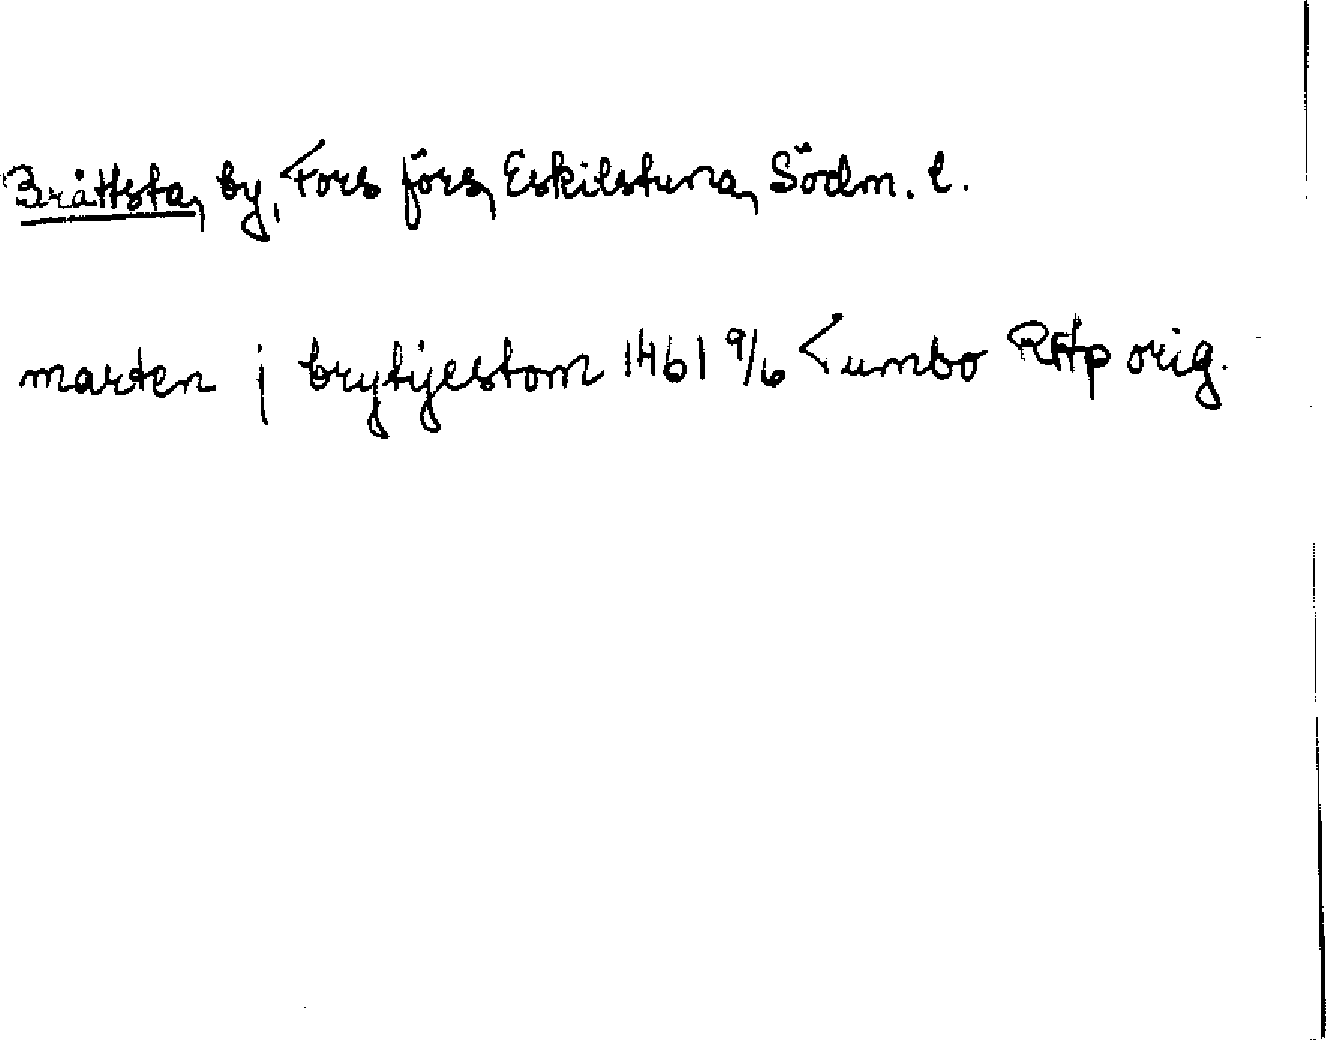 Bråttsta, by, Fors förs, Eskilstuna, Södm. l.
marten j brytyestom 1461 9/6 Lumbo RAp orig.